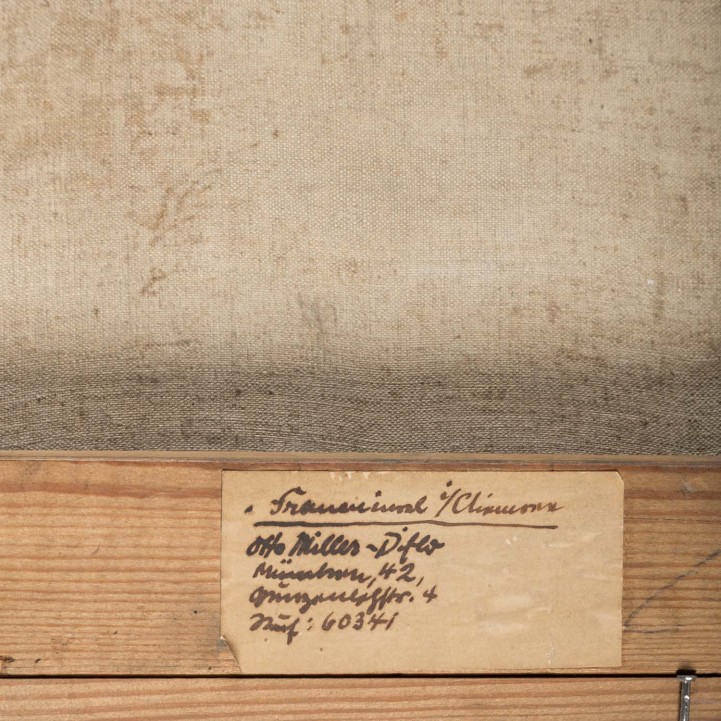 Fraueninsel i/Chiemsee
Otto Miller-Diflo
München, 42,
Gunzenlehstr. 4
Ruf: 60341